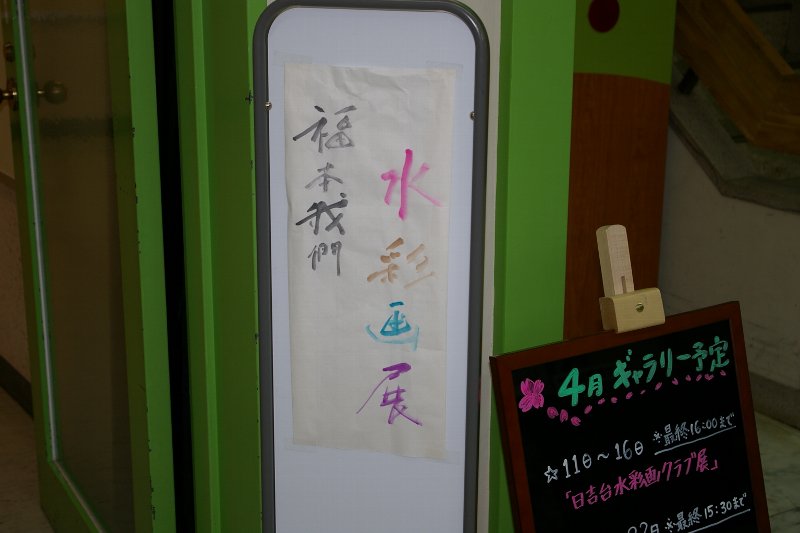 水彩画展
福本我們
4月 ギャラリー予定
☆11日～16日 ※最終16:00まで
「日吉台水彩画クラブ展」
22日 ※最終15:30まで